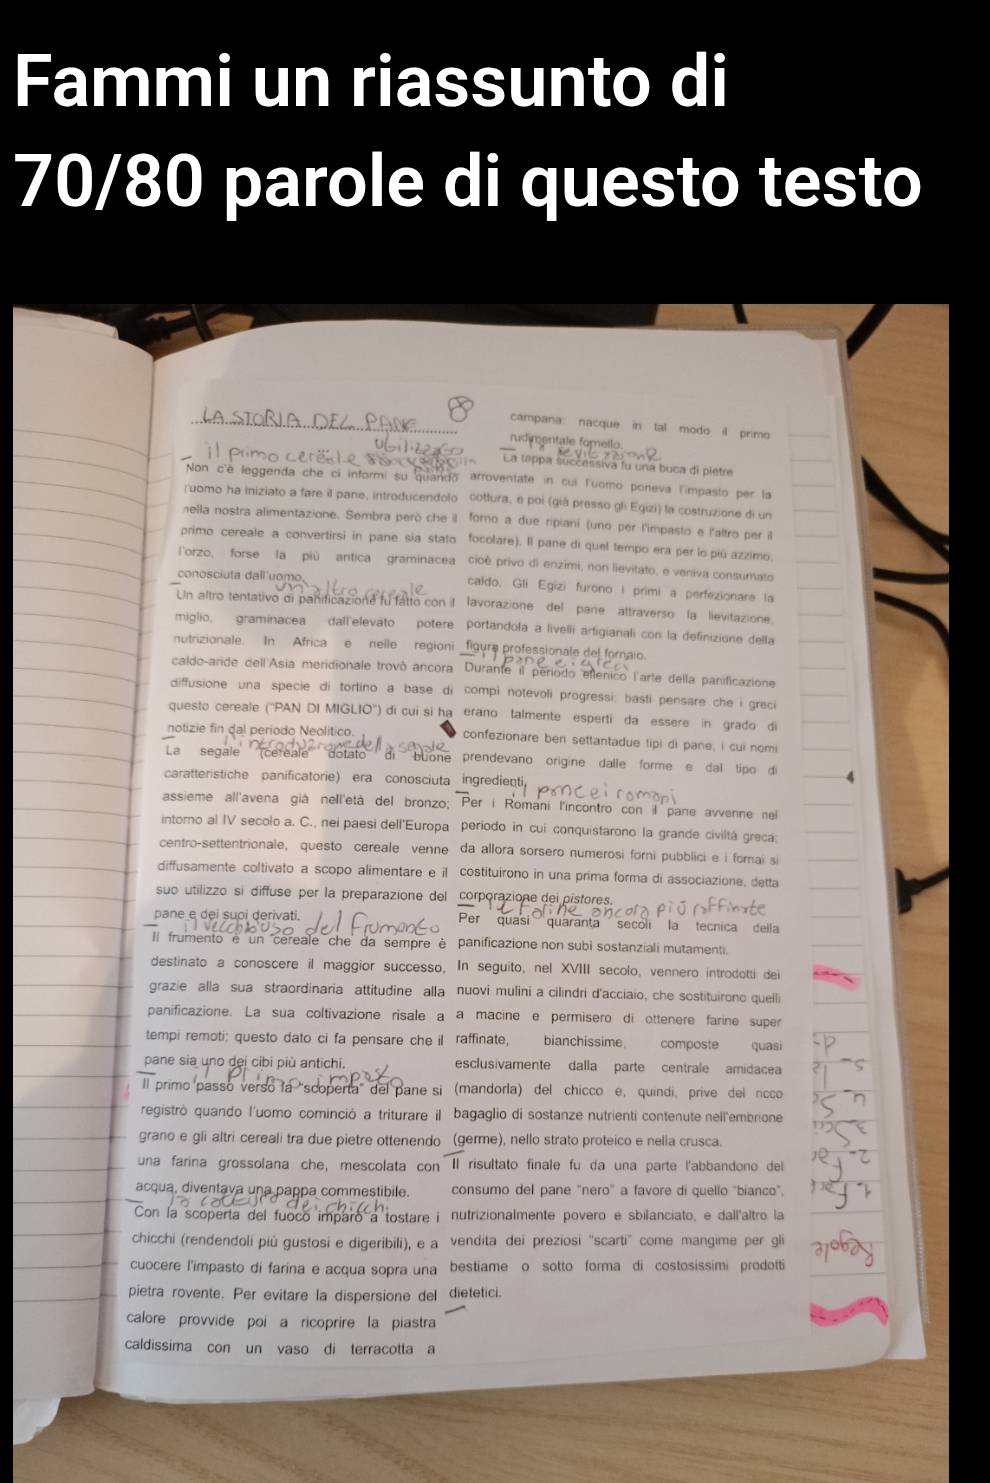 Fammi un riassunto di
70/80 parole di questo testo
LA STORIA DEL PANE
il primo cereale utilizzato
Non c'è leggenda che ci informi su quando
l'uomo ha iniziato a fare il pane, introducendolo
nella nostra alimentazione. Sembra però che il
primo cereale a convertirsi in pane sia stato
l'orzo, forse la più antica graminacea
conosciuta dall'uomo.
un altro cereale
Un altro tentativo di panificazione fu fatto con il
miglio, graminacea dall'elevato potere
nutrizionale. In Africa e nelle regioni
caldo-aride dell'Asia meridionale trovò ancora
diffusione una specie di tortino a base di
questo cereale ("PAN DI MIGLIO") di cui si ha
notizie fin dal periodo Neolitico.
l'introduzione della segale
La segale (cereale dotato di buone
caratteristiche panificatorie) era conosciuta
assieme all'avena già nell'età del bronzo;
intorno al IV secolo a. C., nei paesi dell'Europa
centro-settentrionale, questo cereale venne
diffusamente coltivato a scopo alimentare e il
suo utilizzo si diffuse per la preparazione del
pane e dei suoi derivati.
il vecchio uso del frumento
Il frumento è un cereale che da sempre è
destinato a conoscere il maggior successo,
grazie alla sua straordinaria attitudine alla
panificazione. La sua coltivazione risale a
tempi remoti; questo dato ci fa pensare che il
pane sia uno dei cibi più antichi.
il primo impasto
Il primo passo verso la "scoperta" del pane si
registrò quando l'uomo cominciò a triturare il
grano e gli altri cereali tra due pietre ottenendo
una farina grossolana che, mescolata con
acqua, diventava una pappa commestibile.
la cottura dei chicchi
Con la scoperta del fuoco imparò a tostare i
chicchi (rendendoli più gustosi e digeribili), e a
cuocere l'impasto di farina e acqua sopra una
pietra rovente. Per evitare la dispersione del
calore provvide poi a ricoprire la piastra
caldissima con un vaso di terracotta a
campana: nacque in tal modo il primo
rudimentale fornello.
La tappa successiva fu una buca di pietre
arroventate in cui l'uomo poneva l'impasto per la
cottura, e poi (già presso gli Egizi) la costruzione di un
forno a due ripiani (uno per l'impasto e l'altro per il
focolare). Il pane di quel tempo era per lo più azzimo,
cioè privo di enzimi, non lievitato, e veniva consumato
caldo. Gli Egizi furono i primi a perfezionare la
lavorazione del pane attraverso la lievitazione,
portandola a livelli artigianali con la definizione della
figura professionale del fornaio.
il pane e i greci
Durante il periodo ellenico l'arte della panificazione
compì notevoli progressi; basti pensare che i greci
erano talmente esperti da essere in grado di
confezionare ben settantadue tipi di pane, i cui nomi
prendevano origine dalle forme e dal tipo di
ingredienti.
il pane e i romani
Per i Romani l'incontro con il pane avvenne nel
periodo in cui conquistarono la grande civiltà greca;
da allora sorsero numerosi forni pubblici e i fornai si
costituirono in una prima forma di associazione, detta
corporazione dei pistores.
le farine ancora più raffinate
Per quasi quaranta secoli la tecnica della
panificazione non subì sostanziali mutamenti.
In seguito, nel XVIII secolo, vennero introdotti dei
nuovi mulini a cilindri d'acciaio, che sostituirono quelli
a macine e permisero di ottenere farine super
raffinate, bianchissime, composte quasi
esclusivamente dalla parte centrale amidacea
(mandorla) del chicco e, quindi, prive del ricco
bagaglio di sostanze nutrienti contenute nell'embrione
(germe), nello strato proteico e nella crusca.
Il risultato finale fu da una parte l'abbandono del
consumo del pane "nero" a favore di quello "bianco",
nutrizionalmente povero e sbilanciato, e dall'altro la
vendita dei preziosi "scarti" come mangime per gli
bestiame o sotto forma di costosissimi prodotti
dietetici.
Regole